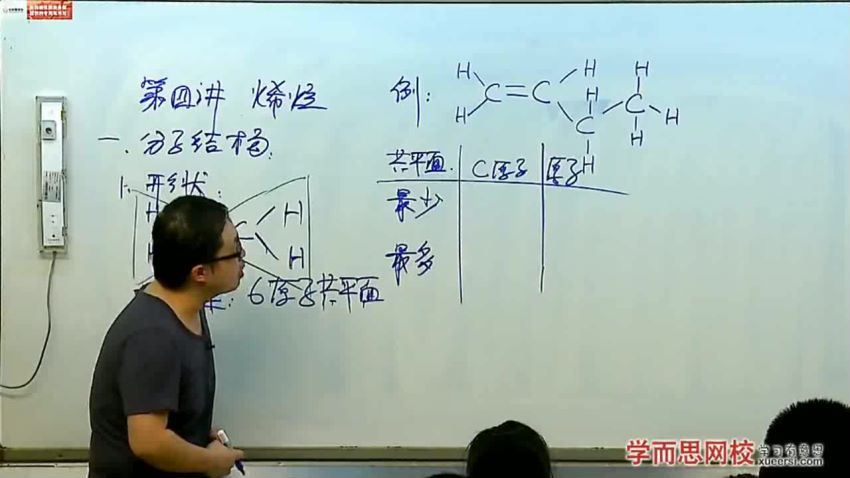 第四讲 烯烃
一、分子结构
1. 形状
H H
H C H
6原子共平面
例:
H H H H
C=C C
H C H H
H
共平面 C原子 原子
最少
最多
学而思网校 学习有意思
xueersi.com